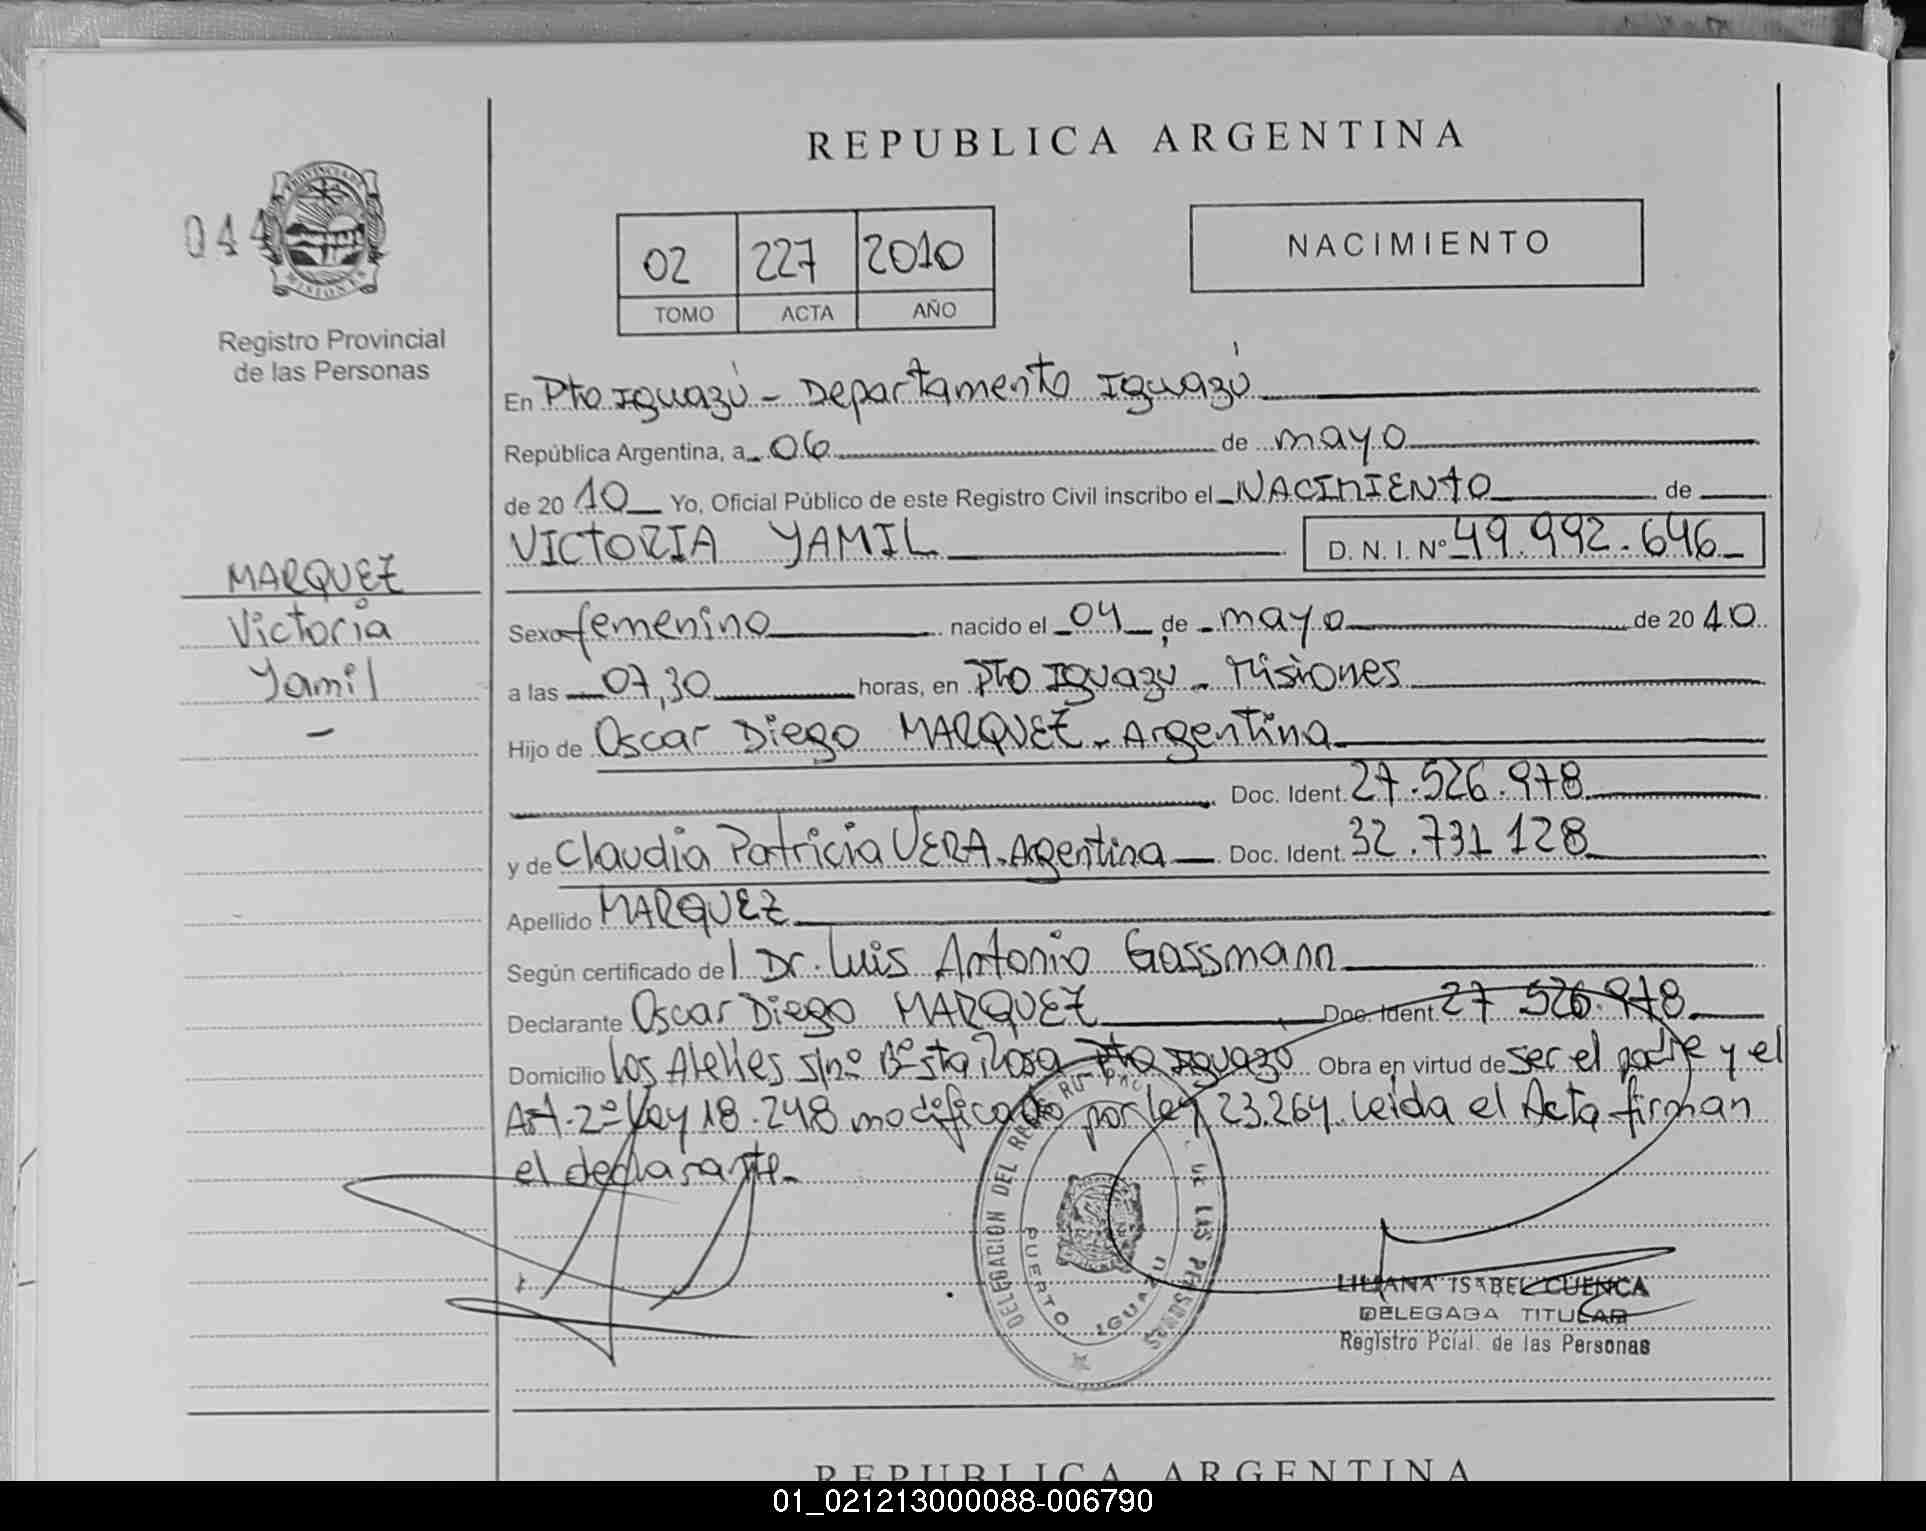 REPUBLICA ARGENTINA
044
PROVINCIA DE
MISIONES
Registro Provincial
de las Personas
02 227 2010
TOMO ACTA AÑO
NACIMIENTO
En Pto Iguazú - Departamento Iguazú
República Argentina, a 06 de mayo
de 2010 Yo, Oficial Público de este Registro Civil inscribo el NACIMIENTO de
VICTORIA YAMIL D. N. I. Nº 49.992.646
MARQUEZ
Victoria
Yamil
-
Sexo femenino nacido el 04 de mayo de 2010
a las 07,30 horas, en Pto Iguazú - Misiones
Hijo de Oscar Diego MARQUEZ - Argentina
Doc. Ident. 27.526.978
y de Claudia Patricia VERA - Argentina Doc. Ident. 32.731 128
Apellido MARQUEZ
Según certificado del Dr. Luis Antonio Gassmann
Declarante Oscar Diego MARQUEZ Doc. Ident. 27 526.978
Domicilio Los s/nº Bº Sta Rosa Pto Iguazú Obra en virtud de ser el padre y el
Art. 2º Ley 18.248 modificado por ley 23.264. Leída el Acta firman
el declarante.-
DELEGACION DEL DE LAS PERSONAS
PUERTO IGUAZU
LILIANA ISABEL CUENCA
DELEGADA TITULAR
Registro Pcial. de las Personas
REPUBLICA ARGENTINA
01_021213000088-006790